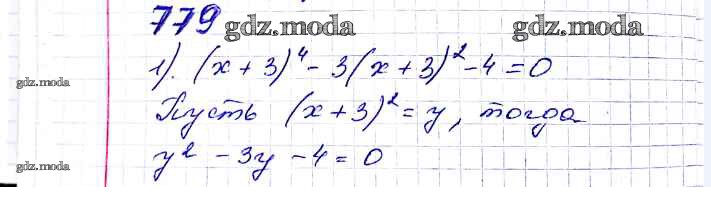 779 gdz.moda gdz.moda
1). (x+3)⁴-3(x+3)²-4=0
gdz.moda
Пусть (x+3)²=y, тогда
y²-3y-4=0
gdz.moda